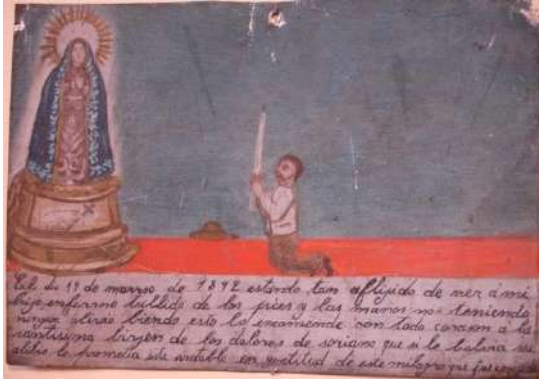 El dia 19 de marso de 1892 estando tan aflijido de ver á mi
hijo enfermo tullido de los pies y las manos no teniendo
ningun alivio biendo esto lo encomende con todo corazon á la
santisima birgen de los dolores de soriano que si le balana su
le prometia este retablo en gratitud de este milagro que fue